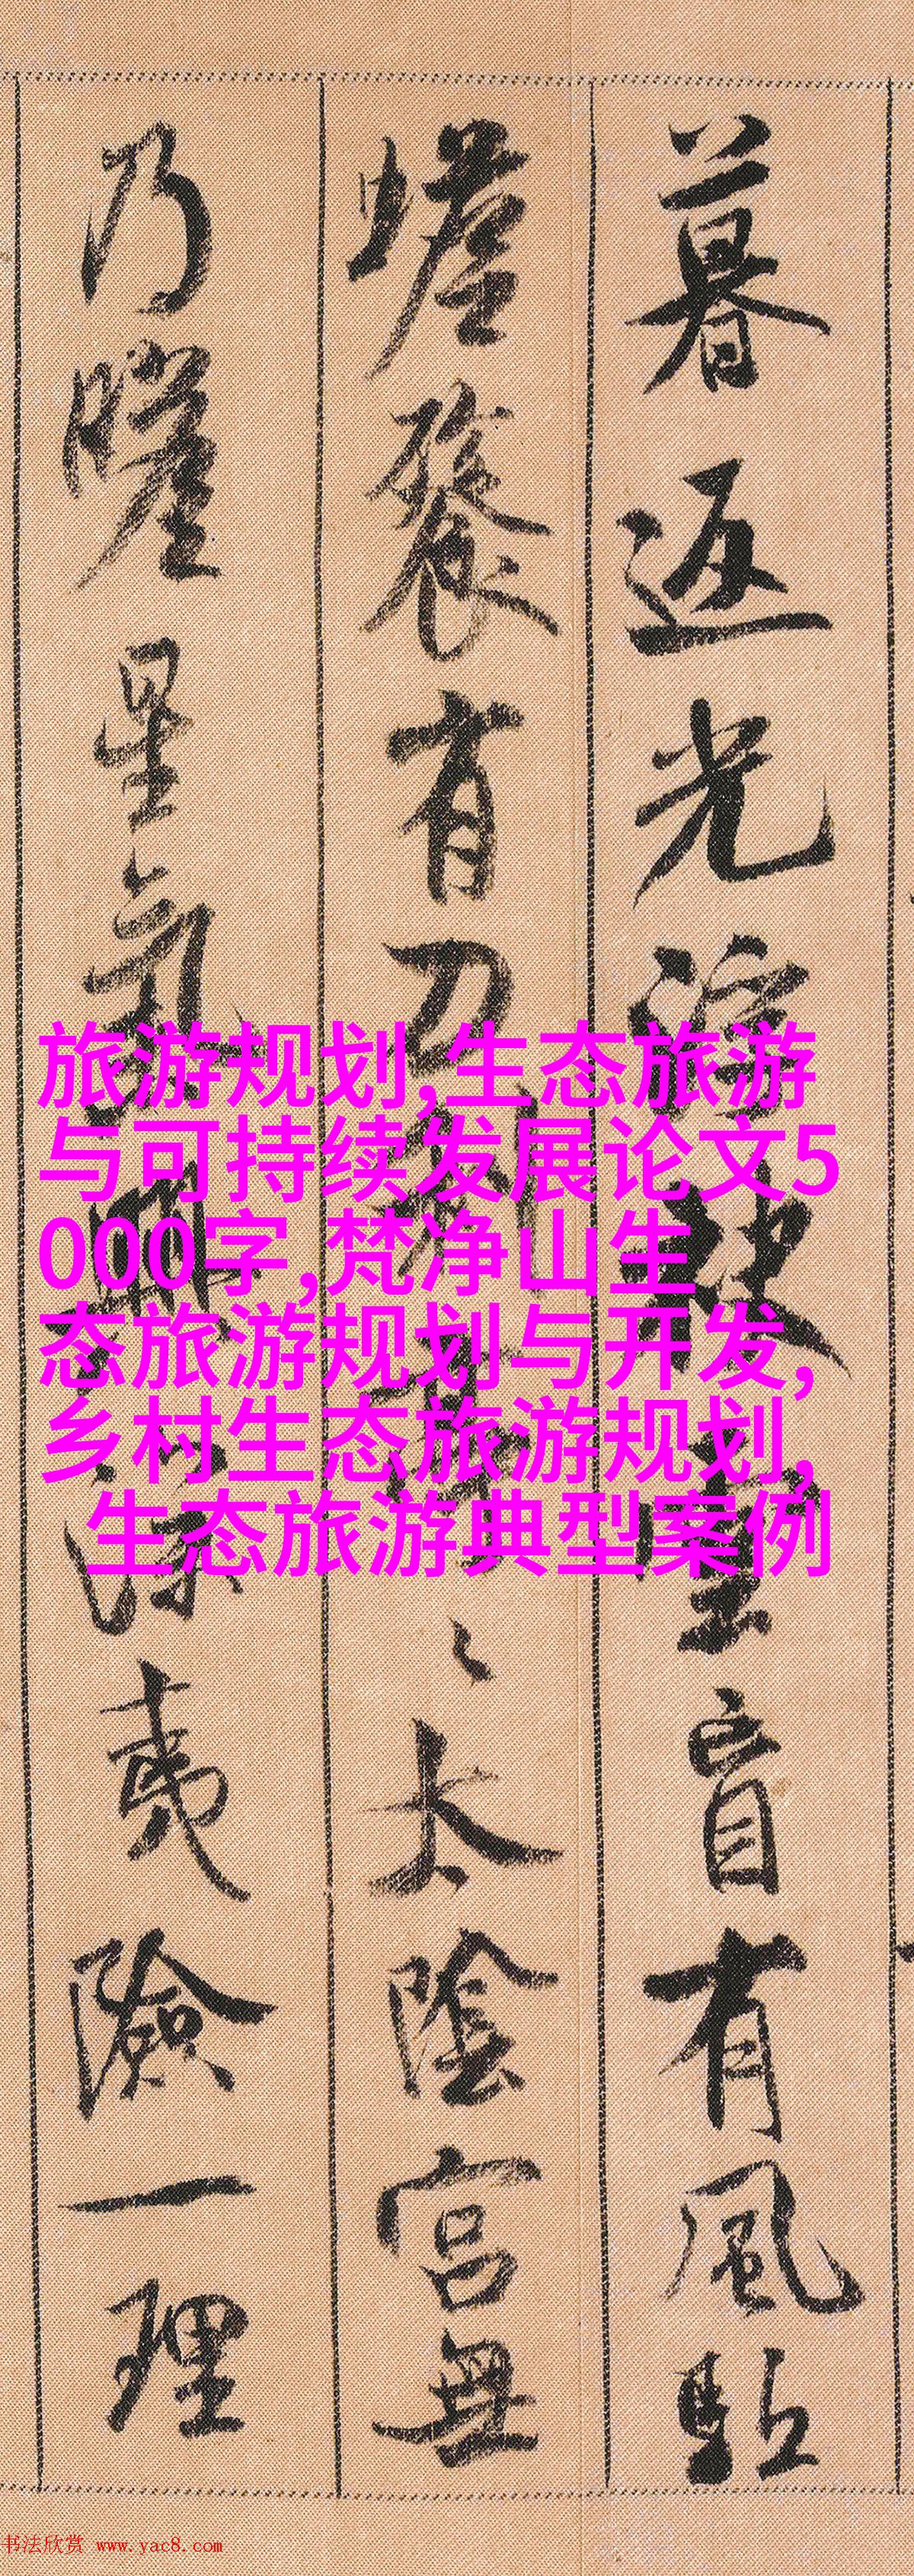 暮返光浮
盲有風點
塔養有刀
太陰宮無
乃瞠星氣
夷險一理
旅游规划,生态旅游
与可持续发展论文5
000字,梵净山生
态旅游规划与开发,
乡村生态旅游规划,
生态旅游典型案例
书法欣赏 www.yac8.com